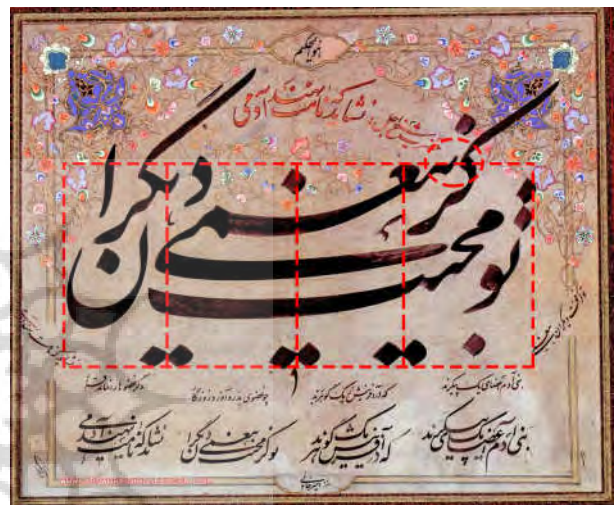 هوالحکیم
نشاید که نامت نهند آدمی
تو کز محنت دیگران بی غمی
بنی آدم اعضای یک پیکرند
که در آفرینش ز یک گوهرند
چو عضوی بدرد آورد روزگار
دگر عضوها را نماند قرار
بنی آدم اعضای یک پیکرند
که در آفرینش ز یک گوهرند
تو کز محنت دیگران بی غمی
نشاید که نامت نهند آدمی